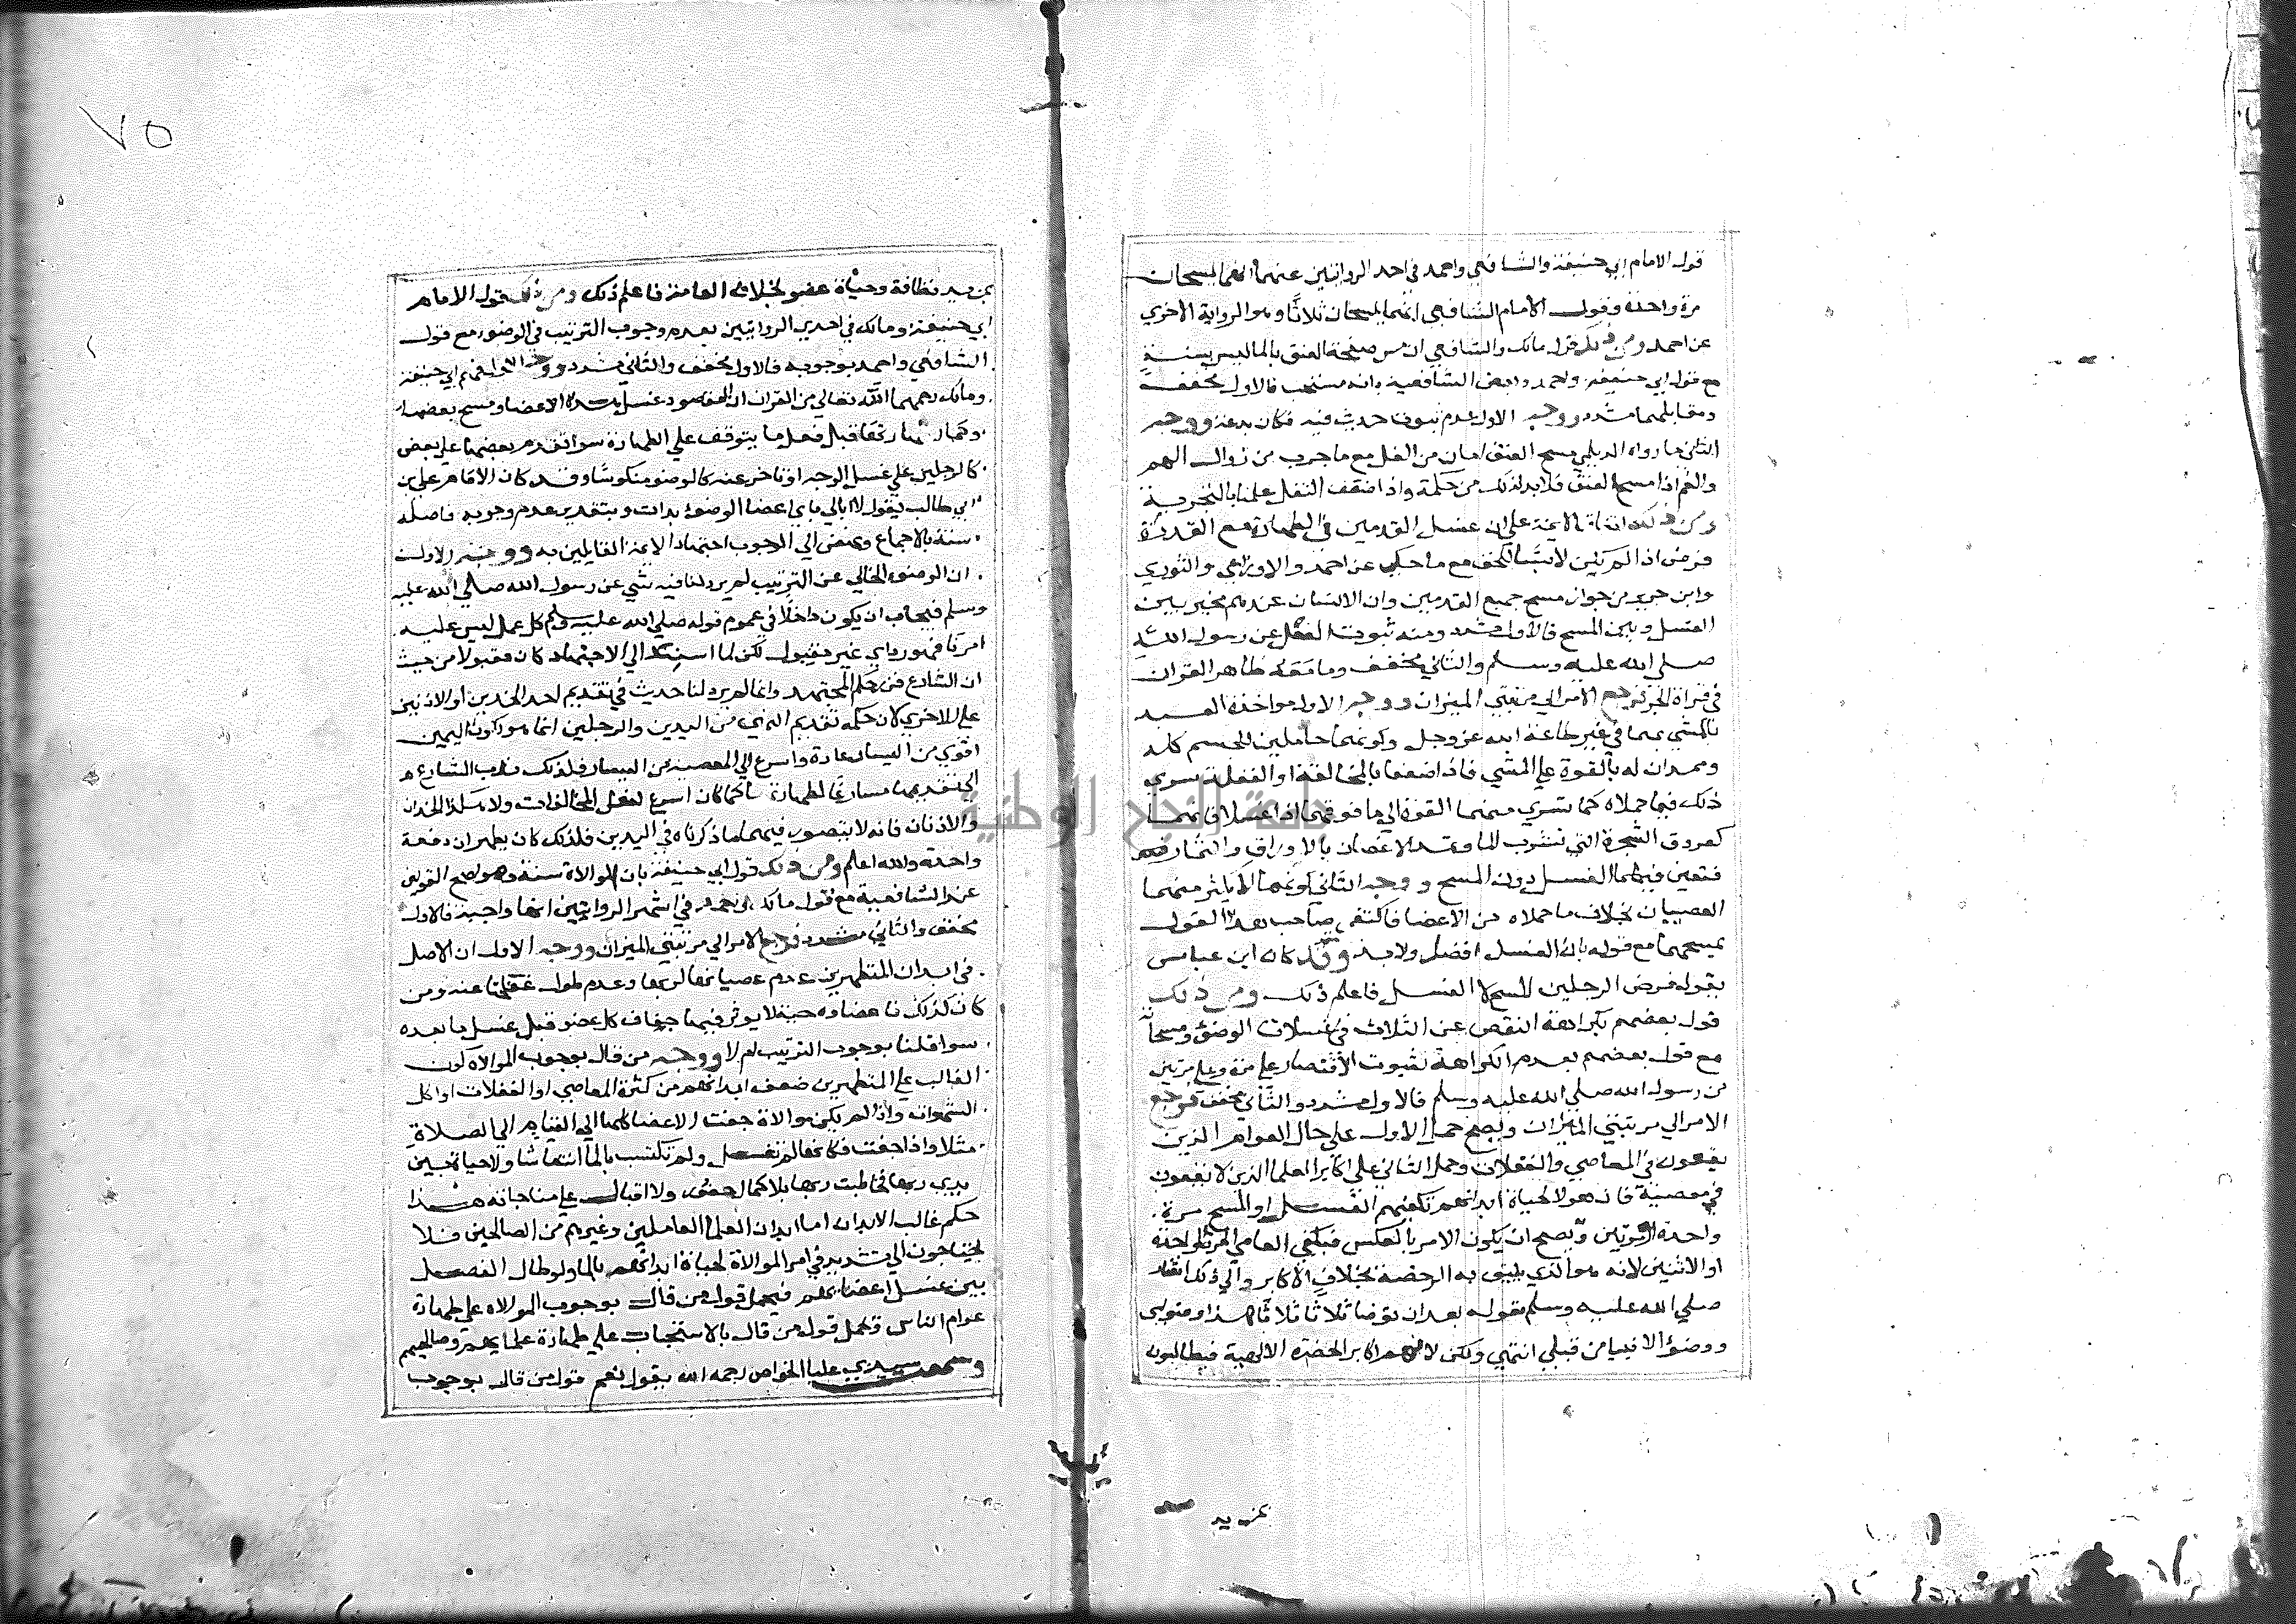 قول الامام ابي حنيفة والشافعي واحمد في احد الروايتين عنهما انهما يمسحان
مرة واحدة وقول الامام الشافعي انهما يمسحان ثلاثا وهو الرواية الاخري
عن احمد ومن ذلك قول مالك والشافعي ان مس صفحة العنق بالما ليس بسنة
مع قول ابي حنيفة واحمد وبعض الشافعية بانه مستحب فالاول مخفف
ومقابلهما مشدد ووجه الاول عدم ثبوت حديث فيه فكان بدعة ووجه
الثاني ما رواه الديلمي مسح العنق امان من الغل مع ما جرب من زوال الهم
والغم اذا مسح العنق فلا بد لذلك من حكمة واذا ضعف النقل علمنا بالتجربة
ومن ذلك اتفاق الايمة علي ان غسل القدمين في الطهارة مع القدرة
فرض اذا لم يكن لابسا للخف مع ما حكي عن احمد والاوزاعي والثوري
وابن جرير من جواز مسح جميع القدمين وان الانسان عندهم مخير بين
الغسل وبين المسح فالاول مشدد ومنه ثبوت الفعل عن رسول الله
صلي الله عليه وسلم والثاني مخفف ومامعه ظاهر القران
في قراة الجر فرجع الامر الي مرتبتي الميزان ووجه الاول مواخذة العبد
بالمشي بهما في غير طاعة الله عز وجل وكونهما حاملين للجسم كله
وممدان له بالقوة علي المشي فاذا ضعفا بالمخالفة او الغفلة سري
ذلك فيما حملاه كما تسري منهما القوة الي ما فوقهما اذا غسلا فانهما
كعروق الشجرة التي تشرب الما وتمد الاغصان بالاوراق والثمار فهم
فتعين فيهما الغسل دون المسح ووجه الثاني كونهما لا يكثر منهما
العصيان بخلاف ما حملاه من الاعضا فاكتفي صاحب هذا القول
بمسحهما مع قوله بان الغسل افضل ولا بد وقد كان ابن عباس
يقول فرض الرجلين المسح لا الغسل فاعلم ذلك ومن ذلك
قول بعضهم بكراهة النقص عن الثلاث في غسلات الوضو ومسحاته
مع قول بعضهم بعدم الكراهة لثبوت الاقتصار علي مرة وعلي مرتين
من رسول الله صلي الله عليه وسلم فالاول مشدد والثاني مخفف فرجع
الامر الي مرتبتي الميزان ويصح حمل الاول علي حال العوام الذين
يقعون في المعاصي والغفلات وحمل الثاني علي اكابر العلما الذين لا يقعون
في معصية فان هولا لحياة ابدانهم تكفيهم الغسل او المسح مرة
واحدة او مرتين ويصح ان يكون الامر بالعكس فيكفي العامي المرة الواحدة
او الاثنين لانه هو الذي يليق به الرخصة بخلاف الاكابر والي ذلك اشار
صلي الله عليه وسلم بقوله بعد ان توضا ثلاثا ثلاثا هذا وضوئي
ووضوء الانبيا من قبلي انتهي ولكن لانهم اكابر الحضرة الالهية فيطالبون
بمزيد
٧٥
بمزيد نظافة وحياة عضو بخلاف العامة فاعلم ذلك ومن ذلك قول الامام
ابي حنيفة ومالك في احدي الروايتين بعدم وجوب الترتيب في الوضوء مع قول
الشافعي واحمد بوجوبه فالاول مخفف والثاني مشدد ووجه الاول فهم ابي حنيفة
ومالك رحمهما الله تعالي من القران ان المقصود غسل هذه الاعضا ومسح بعضها
قبل فعل ما يتوقف علي الطهارة سوا تقدم بعضها علي بعض
كالرجلين علي غسل الوجه او تاخر عنه كالوضوء منكوسا وقد كان الامام علي بن
ابي طالب يقول لا ابالي باي اعضا الوضوء بدات وبتقدير عدم وجوبه فاصله
سنة بالاجماع ونهض الي الوجوب اجتهاد الايمة القايلين به ووجه الاول
ان الوضوء الخالي عن الترتيب لم يرد لنا فيه شي عن رسول الله صلي الله عليه
وسلم فيجاب ان يكون داخلا في عموم قوله صلي الله عليه وسلم كل عمل ليس عليه
امرنا فهو رد اي غير مقبول لكن لما استند الي الاجتهاد كان مقبولا من حيث
ان الشارع قرر حكم المجتهد وانما لم يرد لنا حديث في تقديم احد الخدين او الاذنين
علي الاخري لان حكمة تقديم اليمني من اليدين والرجلين انما هو لكون اليمين
اقوي من اليسار عادة واسرع الي المعصية من اليسار فلذلك ندب الشارع
الي تقديمها مسارعة لطهارة ما كان اسرع لفعل المخالفات ولا كذلك الخدان
والاذنان فانه لا يتصور فيهما ما ذكرناه في اليدين فلذلك كان يطهران دفعة
واحدة والله اعلم ومن ذلك قول ابي حنيفة بان الموالاة سنة وهو اصح القولين
عند الشافعية مع قول مالك واحمد في اشهر الروايتين انها واجبة فالاول
مخفف والثاني مشدد فرجع الامر الي مرتبتي الميزان ووجه الاول ان الاصل
في ابدان المتطهرين عدم عصيانها لربها وعدم طول غفلتها عنه ومن
كان كذلك فاعضاوه حية لا يوثر فيها جفاف كل عضو قبل غسل ما بعده
سوا قلنا بوجوب الترتيب ام لا ووجه من قال بوجوب الموالاة كون
الغالب علي المتطهرين ضعف ابدانهم من كثرة المعاصي او الغفلات او اكل
الشهوات واذا لم يكن موالاة جفت الاعضا كلها الي القيام الي الصلاة
مثلا واذا جفت فكانها لم تغسل ولم تكتسب بالما انتعاشا ولا حياة بين
يدي ربها فخاطبت ربها بلا كمال حضور ولا اقبال علي مناجاته هذا
حكم غالب الابدان اما ابدان العلما العاملين وغيرهم من الصالحين فلا
يحتاجون الي تشديد في امر الموالاة لحياة ابدانهم بالما ولو طال الفصل
بين غسل اعضائهم فيحمل قول من قال بوجوب الموالاة علي طهارة
عوام الناس ويحمل قول من قال بالاستحباب علي طهارة علمايهم وصالحيهم
وسمعت سيدي عليا الخواص رحمه الله يقول نعم قول من قال بوجوب
جامعة النجاح الوطنية